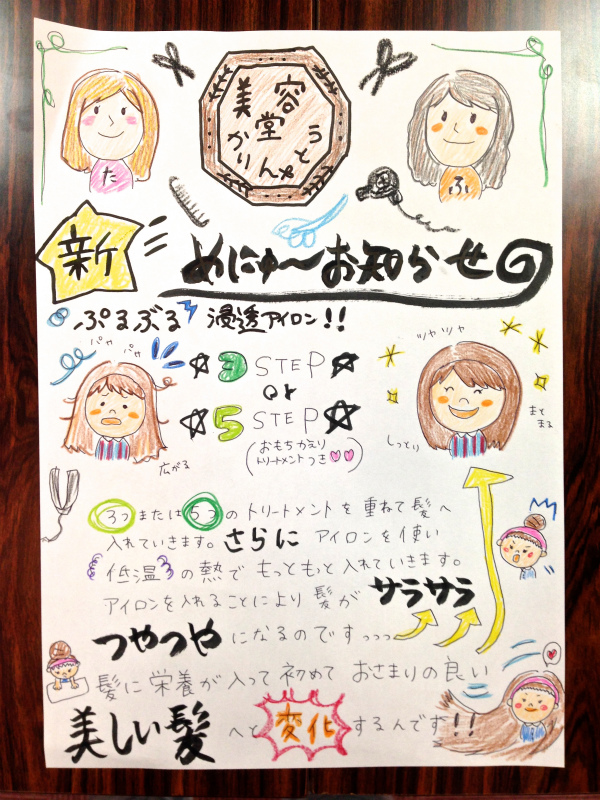 美容堂
かりんとう
た
ふ
新
めにゅ〜お知らせ
ぷるぷる 浸透アイロン!!
パサ パサ
☆3 STEP☆
or
☆5 STEP☆
(おもちかえり
トリートメントつき♡♡)
広がる
ツヤツヤ
まとまる
しっとり
3つまたは5つのトリートメントを重ねて髪へ
入れていきます。さらにアイロンを使い
低温の熱でもっともっと入れていきます。
アイロンを入れることにより髪がサラサラ
つやつやになるのですっっっ
髪に栄養が入って初めておさまりの良い
美しい髪へと変化するんです!!